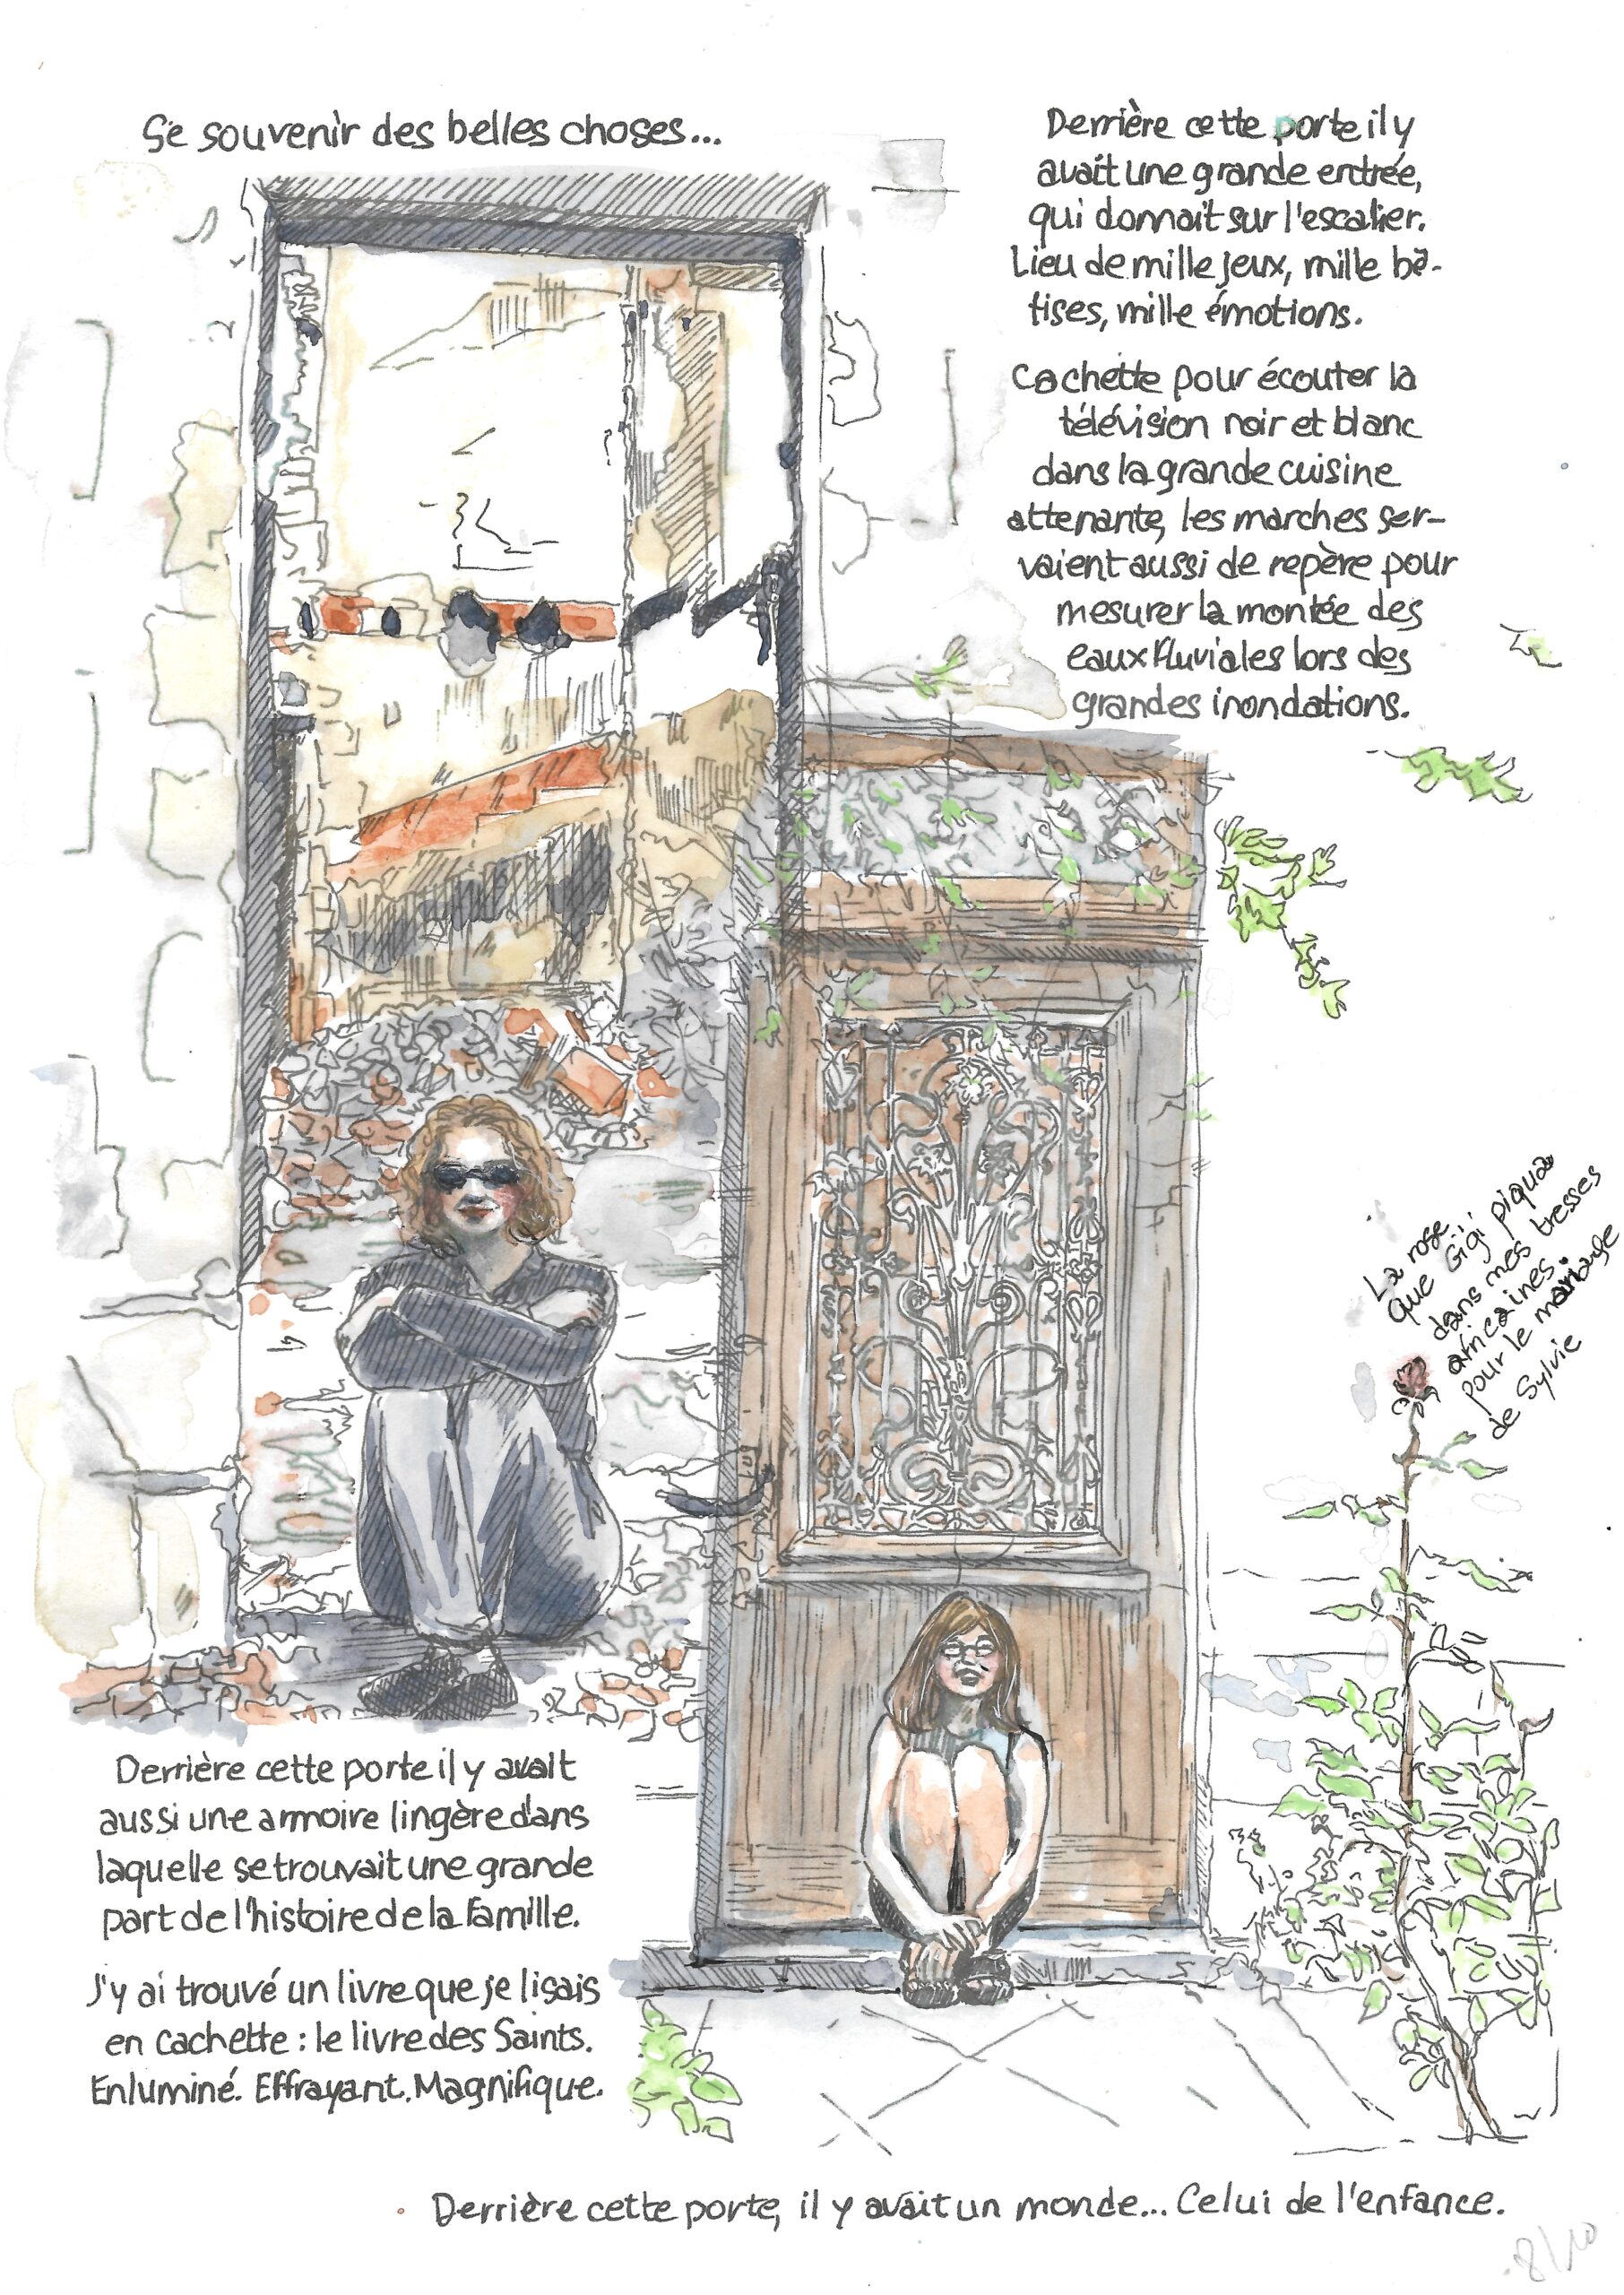 Se souvenir des belles choses...
Derrière cette porte il y
avait une grande entrée,
qui donnait sur l'escalier.
Lieu de mille jeux, mille bê-
tises, mille émotions.
Cachette pour écouter la
télévision noir et blanc
dans la grande cuisine
attenante, les marches ser-
vaient aussi de repère pour
mesurer la montée des
eaux fluviales lors des
grandes inondations.
La rose
que Gigi piqua
dans mes tresses
africaines
pour le mariage
de Sylvie
Derrière cette porte il y avait
aussi une armoire lingère dans
laquelle se trouvait une grande
part de l'histoire de la famille.
J'y ai trouvé un livre que je lisais
en cachette : le livre des Saints.
Enluminé. Effrayant. Magnifique.
Derrière cette porte, il y avait un monde... Celui de l'enfance.
8/10